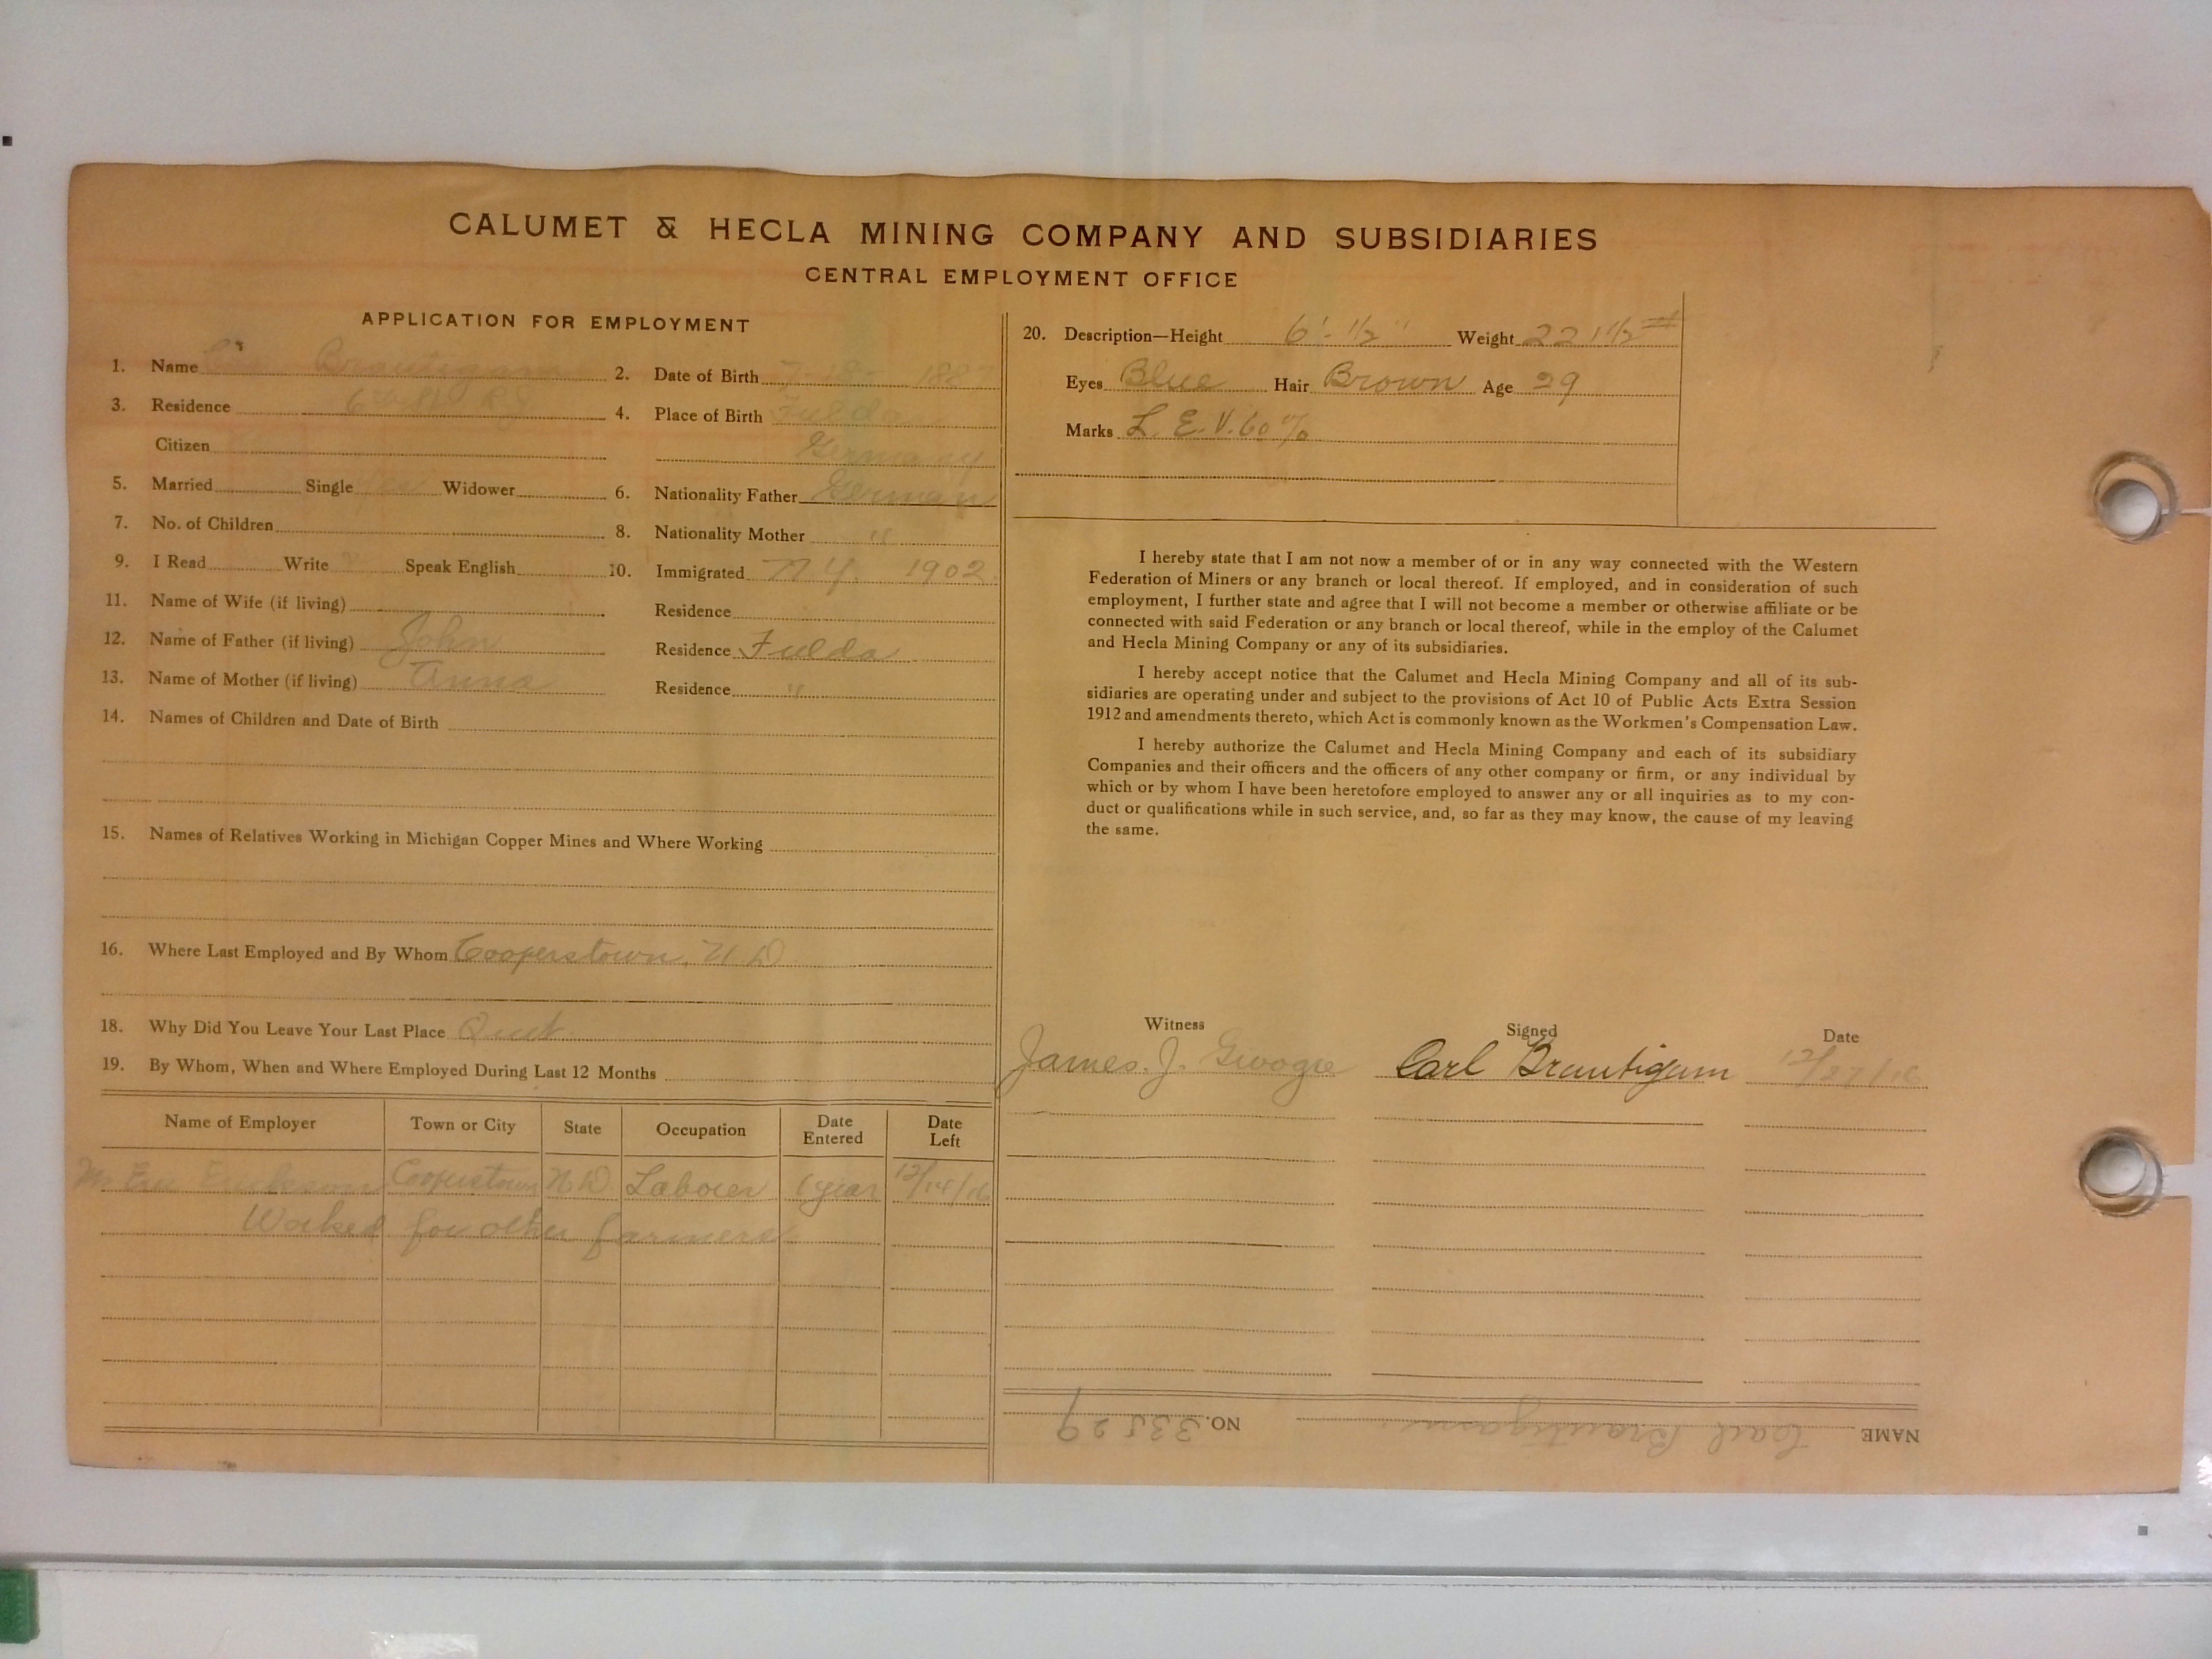 CALUMET & HECLA MINING COMPANY AND SUBSIDIARIES
CENTRAL EMPLOYMENT OFFICE
APPLICATION FOR EMPLOYMENT
1. Name Brautigam
2. Date of Birth 7- 1887
3. Residence
4. Place of Birth Fulda
Citizen
Germany
5. Married Single Widower
6. Nationality Father German
7. No. of Children
8. Nationality Mother "
9. I Read Write Speak English
10. Immigrated N.Y. 1902
11. Name of Wife (if living)
Residence
12. Name of Father (if living) John
Residence Fulda
13. Name of Mother (if living) Anna
Residence "
14. Names of Children and Date of Birth
15. Names of Relatives Working in Michigan Copper Mines and Where Working
16. Where Last Employed and By Whom Cooperstown, N.D
18. Why Did You Leave Your Last Place Quit
19. By Whom, When and Where Employed During Last 12 Months
Name of Employer Town or City State Occupation Date Entered Date Left
Mr Erickson Cooperstown N.D. Laborer 1 year 12/14/16
Worked for other farmers
20. Description—Height 6'-1/2" Weight 221 1/2 #
Eyes Blue Hair Brown Age 29
Marks L. E. V. 60%
I hereby state that I am not now a member of or in any way connected with the Western
Federation of Miners or any branch or local thereof. If employed, and in consideration of such
employment, I further state and agree that I will not become a member or otherwise affiliate or be
connected with said Federation or any branch or local thereof, while in the employ of the Calumet
and Hecla Mining Company or any of its subsidiaries.
I hereby accept notice that the Calumet and Hecla Mining Company and all of its sub-
sidiaries are operating under and subject to the provisions of Act 10 of Public Acts Extra Session
1912 and amendments thereto, which Act is commonly known as the Workmen's Compensation Law.
I hereby authorize the Calumet and Hecla Mining Company and each of its subsidiary
Companies and their officers and the officers of any other company or firm, or any individual by
which or by whom I have been heretofore employed to answer any or all inquiries as to my con-
duct or qualifications while in such service, and, so far as they may know, the cause of my leaving
the same.
Witness Signed Date
James. J. Carl Brautigam 12/27/16
NAME Carl Brautigam. NO. 33529